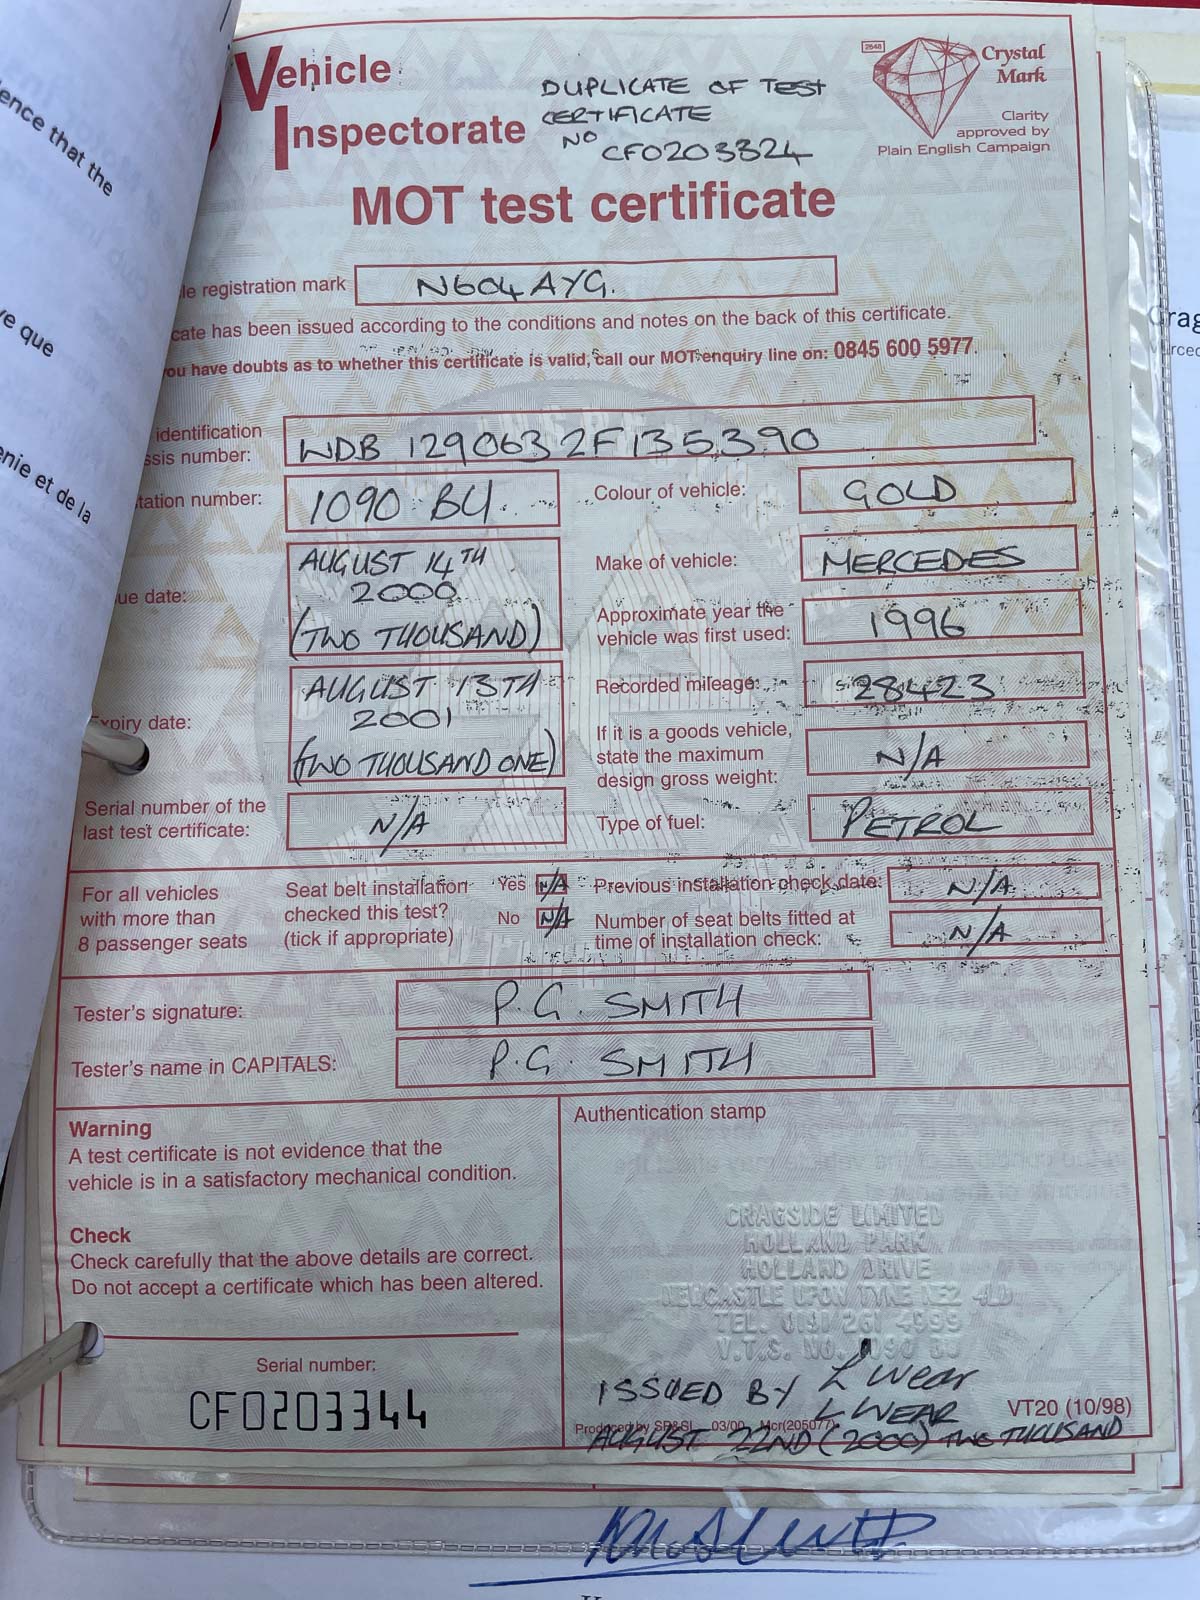 ence that the
ve que
enie et de la
Vehicle
Inspectorate
DUPLICATE OF TEST
CERTIFICATE
NO CF0203324
2648
Crystal
Mark
Clarity
approved by
Plain English Campaign
MOT test certificate
le registration mark N604 AYG.
cate has been issued according to the conditions and notes on the back of this certificate.
you have doubts as to whether this certificate is valid, call our MOT enquiry line on: 0845 600 5977.
identification
ssis number: WDB 129063 2F135390
tation number: 1090 BU
Colour of vehicle: GOLD
ue date: AUGUST 14TH
2000
(TWO THOUSAND)
Make of vehicle: MERCEDES
Approximate year the
vehicle was first used: 1996
Expiry date: AUGUST 13TH
2001
(TWO THOUSAND ONE)
Recorded mileage: 28423
If it is a goods vehicle,
state the maximum
design gross weight: N/A
Serial number of the
last test certificate: N/A
Type of fuel: PETROL
For all vehicles
with more than
8 passenger seats
Seat belt installation
checked this test?
(tick if appropriate)
Yes N/A
No N/A
Previous installation check date: N/A
Number of seat belts fitted at
time of installation check: N/A
Tester's signature: P.G. SMITH
Tester's name in CAPITALS: P.G. SMITH
Warning
A test certificate is not evidence that the
vehicle is in a satisfactory mechanical condition.
Check
Check carefully that the above details are correct.
Do not accept a certificate which has been altered.
Serial number:
CF0203344
Authentication stamp
CRAGSIDE LIMITED
HOLLAND PARK
HOLLAND DRIVE
NEWCASTLE UPON TYNE NE2 4LD
TEL. 0191 261 4999
V.T.S. NO. 1090 BU
ISSUED BY L Wear
L WEAR
VT20 (10/98)
Produced by SP&SL 03/00 Mcr(205077)
AUGUST 22ND (2000) TWO THOUSAND
Crag
Merced